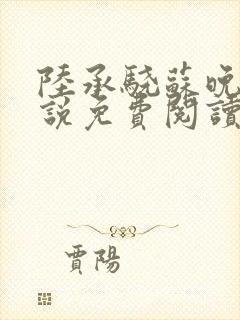 陸承驍蘇晚
說免費閱讀
賈陽